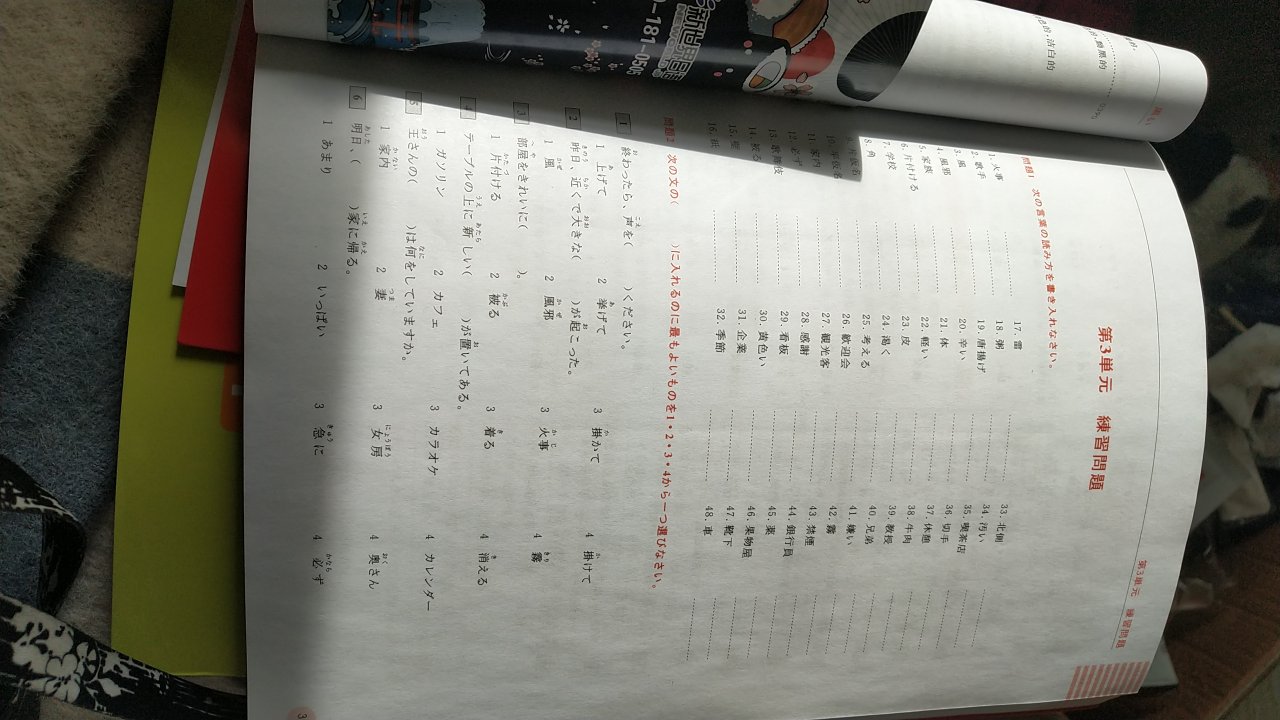 第3単元 練習問題
第3単元 練習問題
問題1 次の言葉の読み方を書き入れなさい。
1. 火事 17. 雷 33. 北側
2. 歌手 18. 粥 34. 汚い
3. 風 19. 唐揚げ 35. 喫茶店
4. 風邪 20. 辛い 36. 切手
5. 家族 21. 体 37. 休憩
6. 片付ける 22. 軽い 38. 牛肉
7. 学校 23. 皮 39. 教授
8. 角 24. 渇く 40. 兄弟
25. 考える 41. 嫌い
26. 歓迎会 42. 霧
11. 家内 27. 観光客 43. 禁煙
12. 必ず 28. 感謝 44. 銀行員
13. 歌舞伎 29. 看板 45. 薬
14. 被る 30. 黄色い 46. 果物屋
15. 壁 31. 企業 47. 靴下
16. 紙 32. 季節 48. 車
問題2 次の文の( )に入れるのに最もよいものを1・2・3・4から一つ選びなさい。
1 終わったら、声を( )ください。
1 上げて 2 挙げて 3 掛かて 4 掛けて
2 昨日、近くで大きな( )が起こった。
1 風 2 風邪 3 火事 4 霧
3 部屋をきれいに( )。
1 片付ける 2 被る 3 着る 4 消える
4 テーブルの上に新しい( )が置いてある。
1 ガソリン 2 カフェ 3 カラオケ 4 カレンダー
5 王さんの( )は何をしていますか。
1 家内 2 妻 3 女房 4 奥さん
6 明日、( )家に帰る。
1 あまり 2 いっぱい 3 急に 4 必ず
新世界日语
-181-0505
洁白的
黝黑的